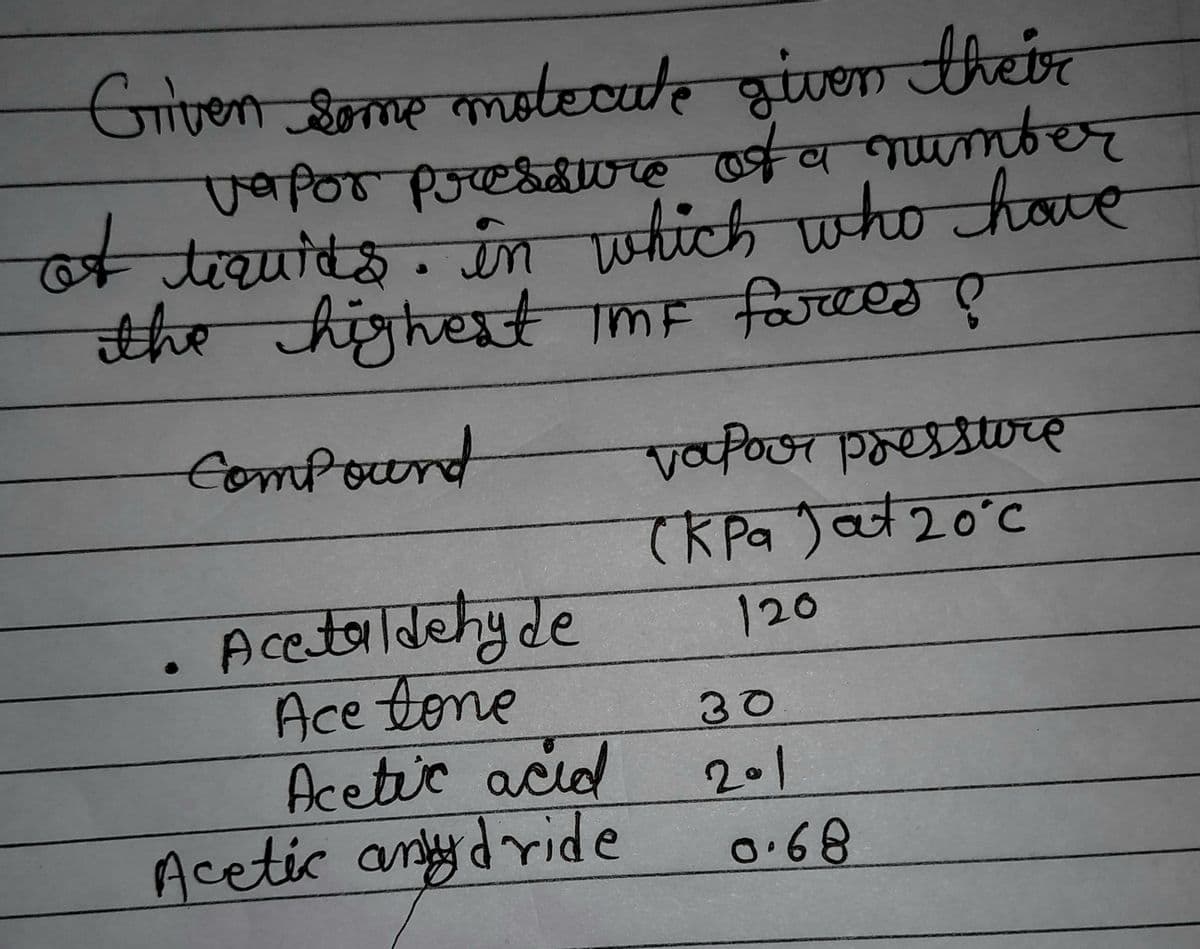 Given some molecule given their
vapor pressure of a number
of liquids. in which who have
the highest IMF forces ?
Compound vapour pressure
(KPa) at 20°C
• Acetaldehyde 120
Acetone 30
Acetic acid 2.1
Acetic anhydride 0.68